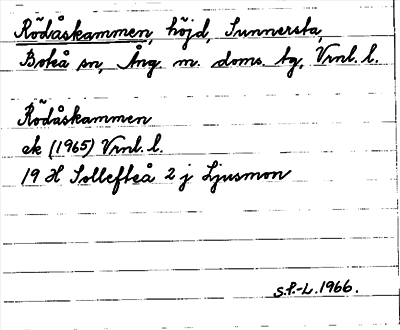 Rödåskammen, höjd, Sunnersta,
Boteå sn, Ång. m. doms. tg, Vrnl. l.
Rödåskammen
ek (1965) Vrnl. l.
19 H Sollefteå 2 j Ljusmon
S.P.-L. 1966.